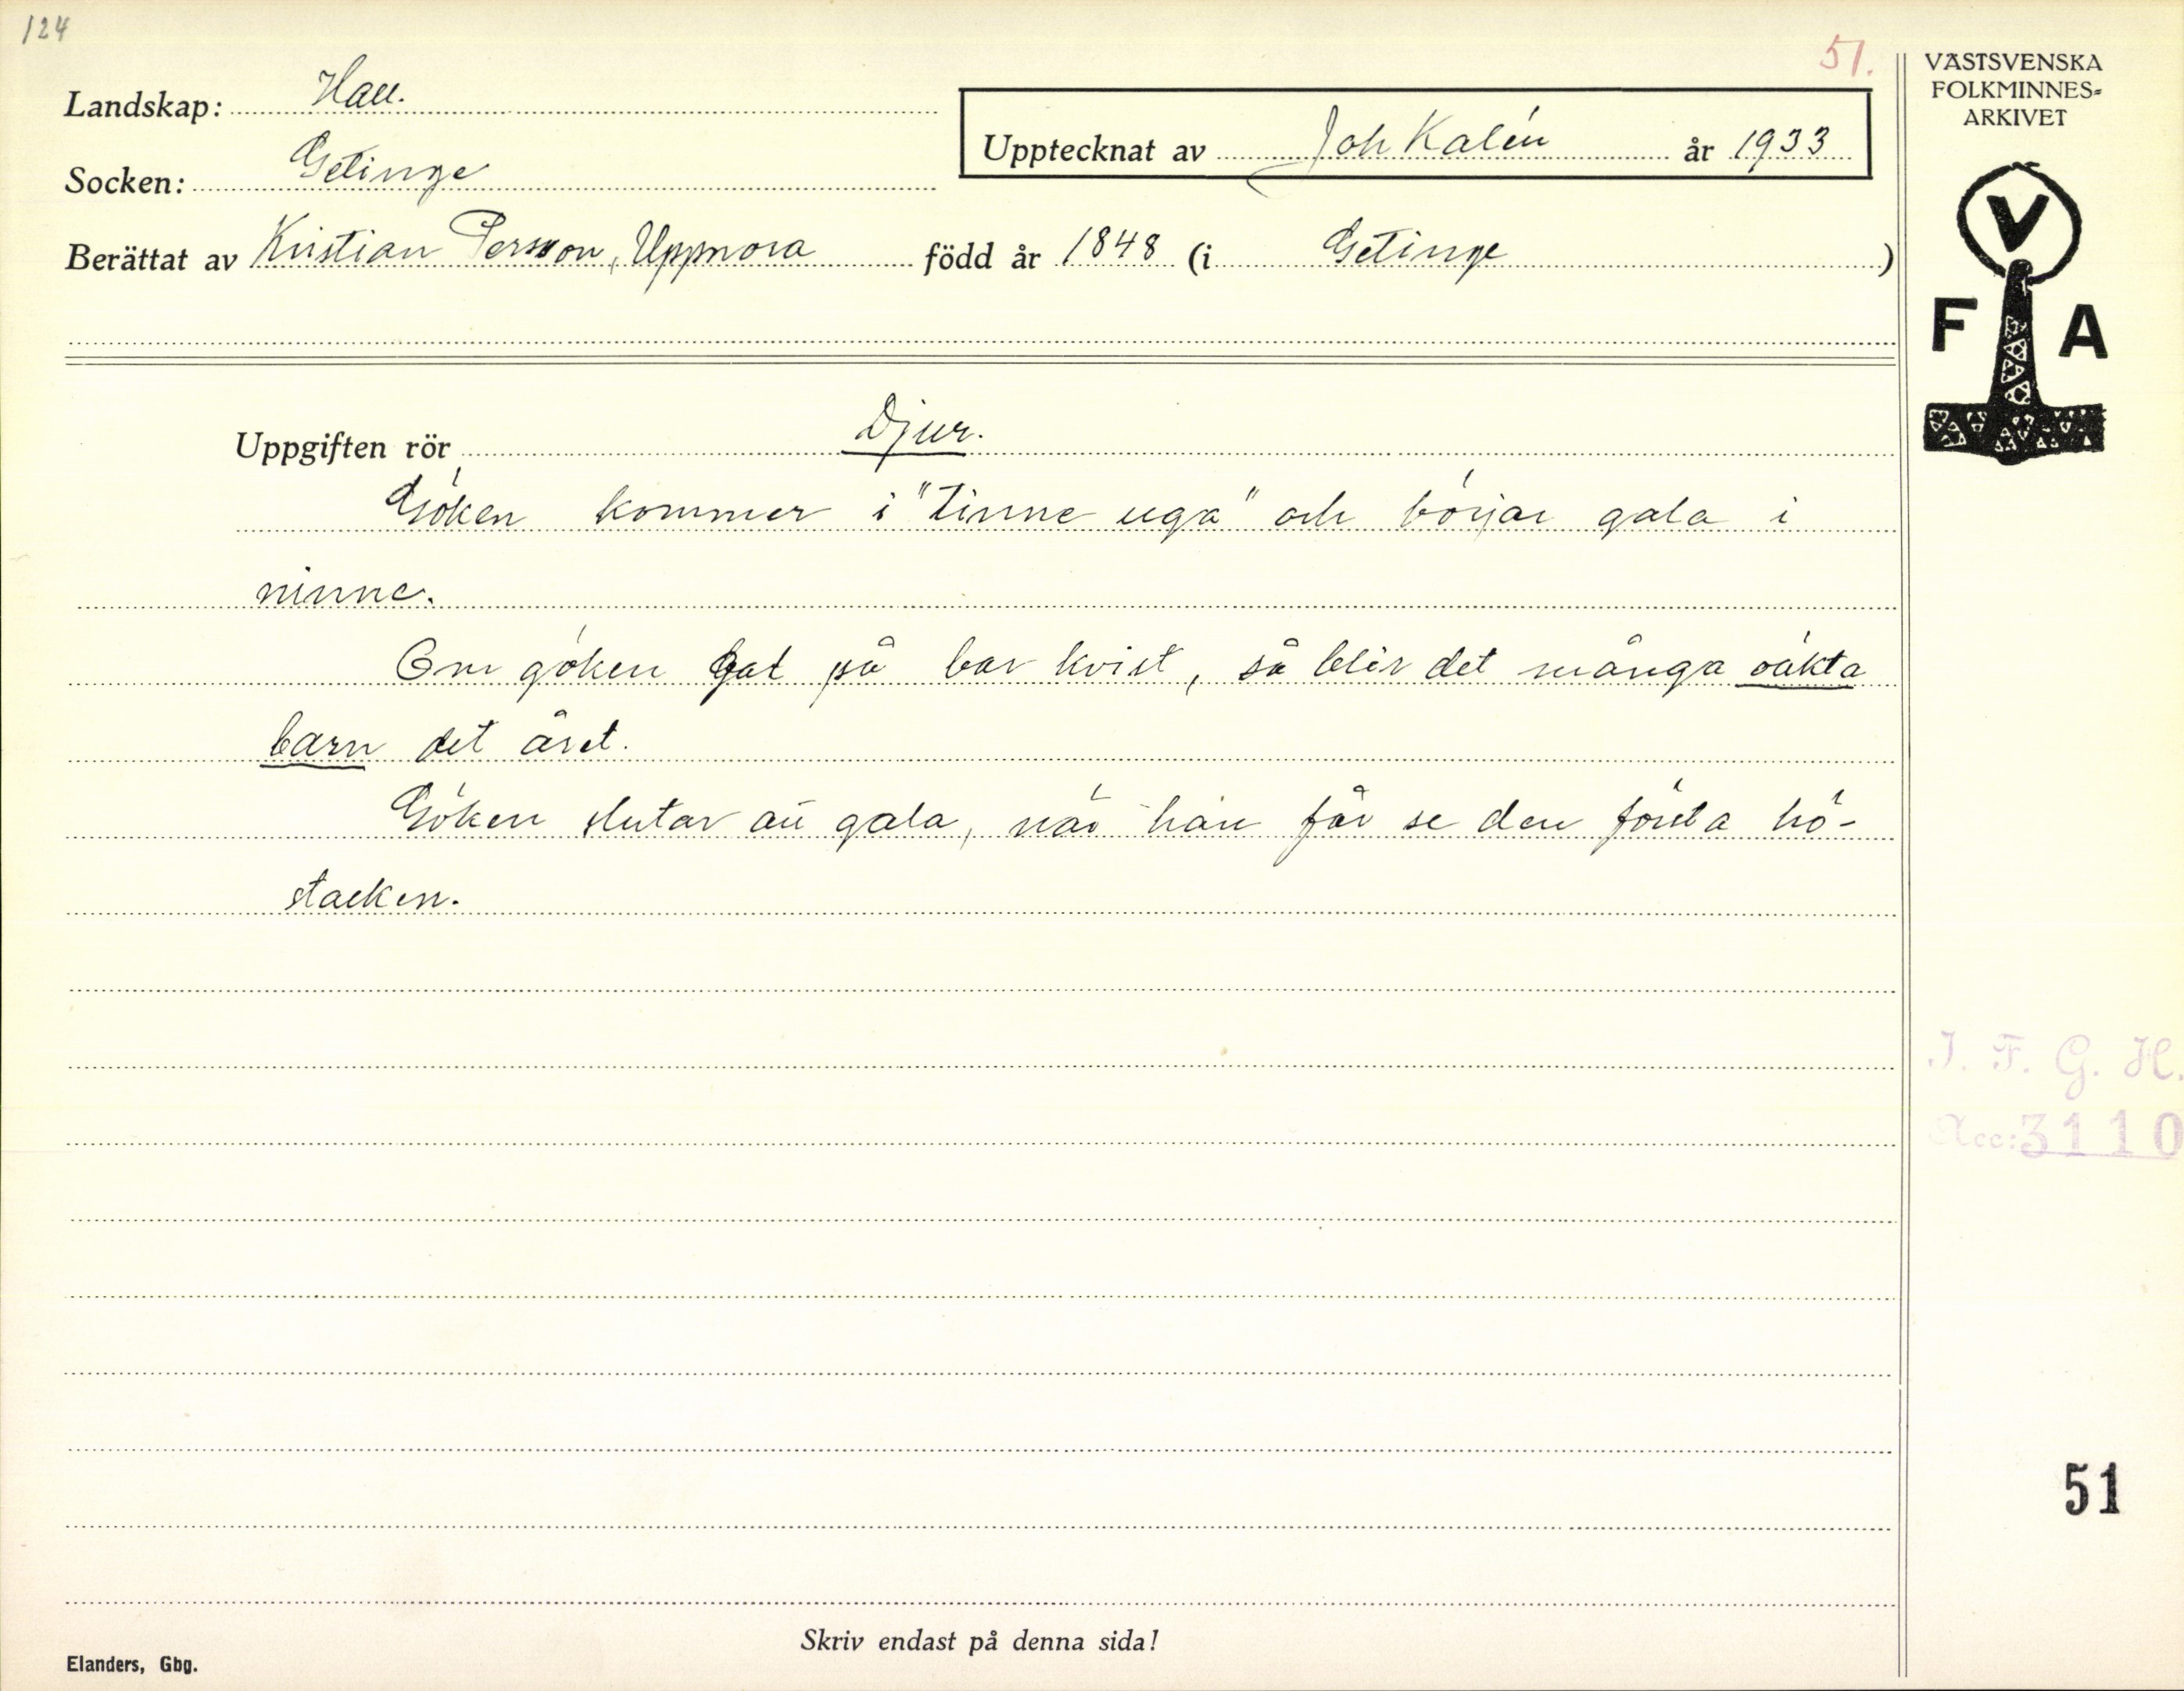 124
51.
Landskap: Hall.
Socken: Getinge
Upptecknat av Joh Kalén år 1933
Berättat av Kristian Persson, Uppmora född år 1848 (i Getinge)
Uppgiften rör Djur.
Göken kommer i "tinne uga" och börjar gala i
ninne.
Om göken gal på bar kvist, så blir det många oäkta
barn det året.
Göken slutar att gala, när han får se den första hö-
stacken.
Skriv endast på denna sida!
Elanders, Gbg.
VÄSTSVENSKA
FOLKMINNES-
ARKIVET
V
F A
I. F. G. H.
Acc: 3110
51